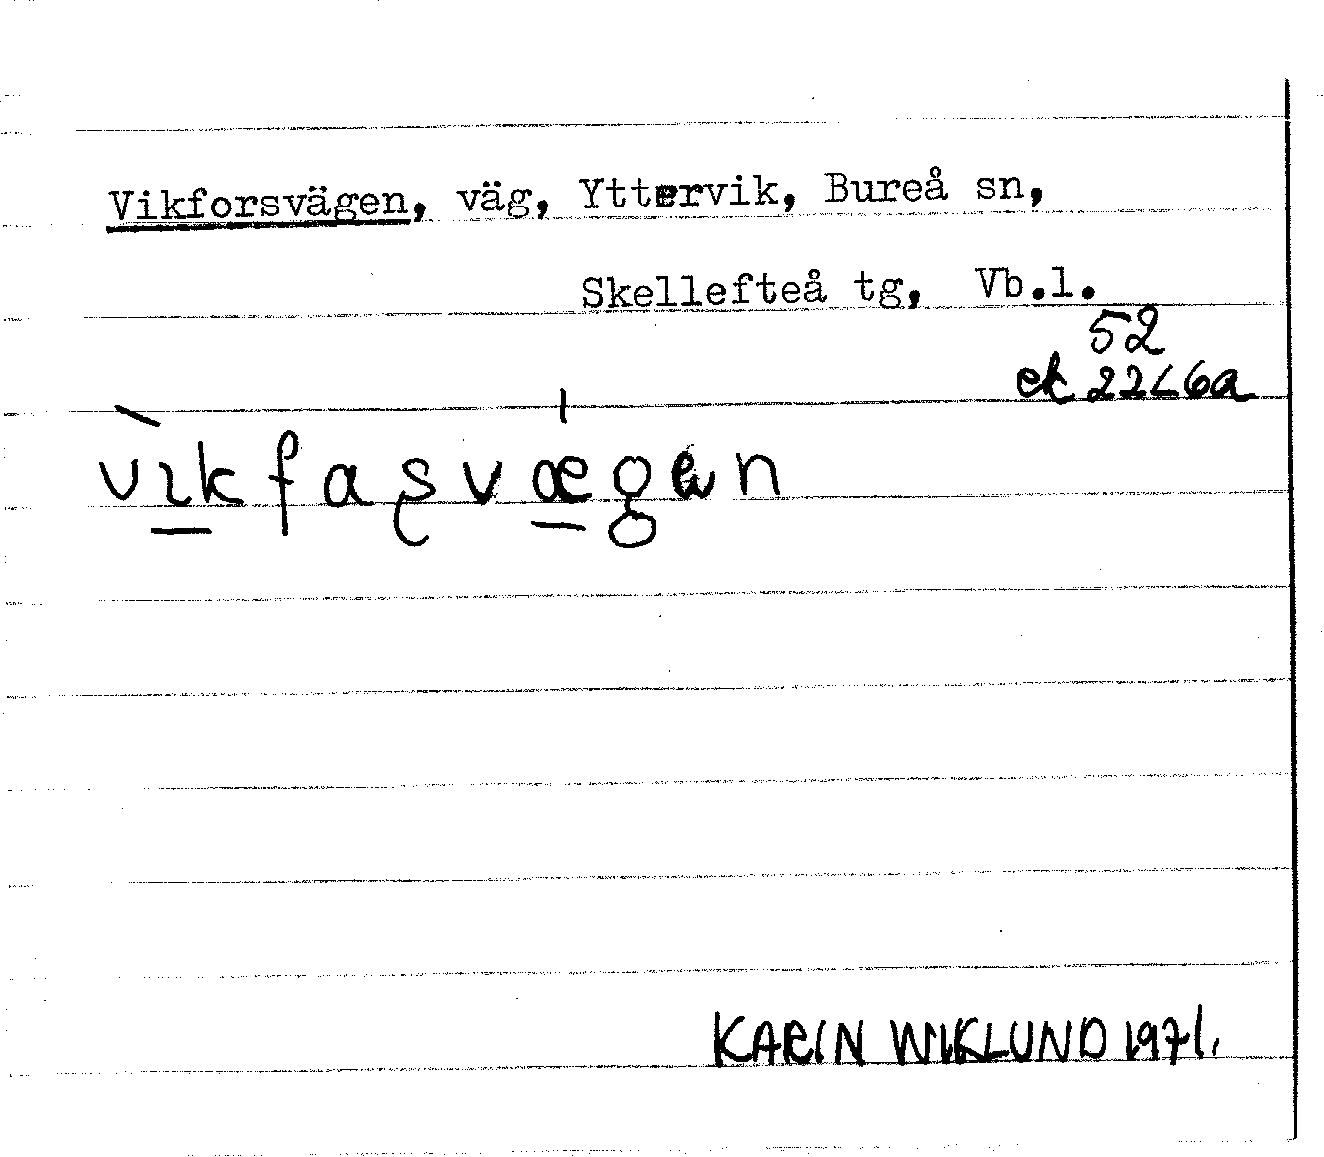 Vikforsvägen, väg, Yttervik, Bureå sn,
Skellefteå tg, Vb.l.
52
ek 22L6a
vıkfaʂvægen
KARIN WIKLUND 1971.